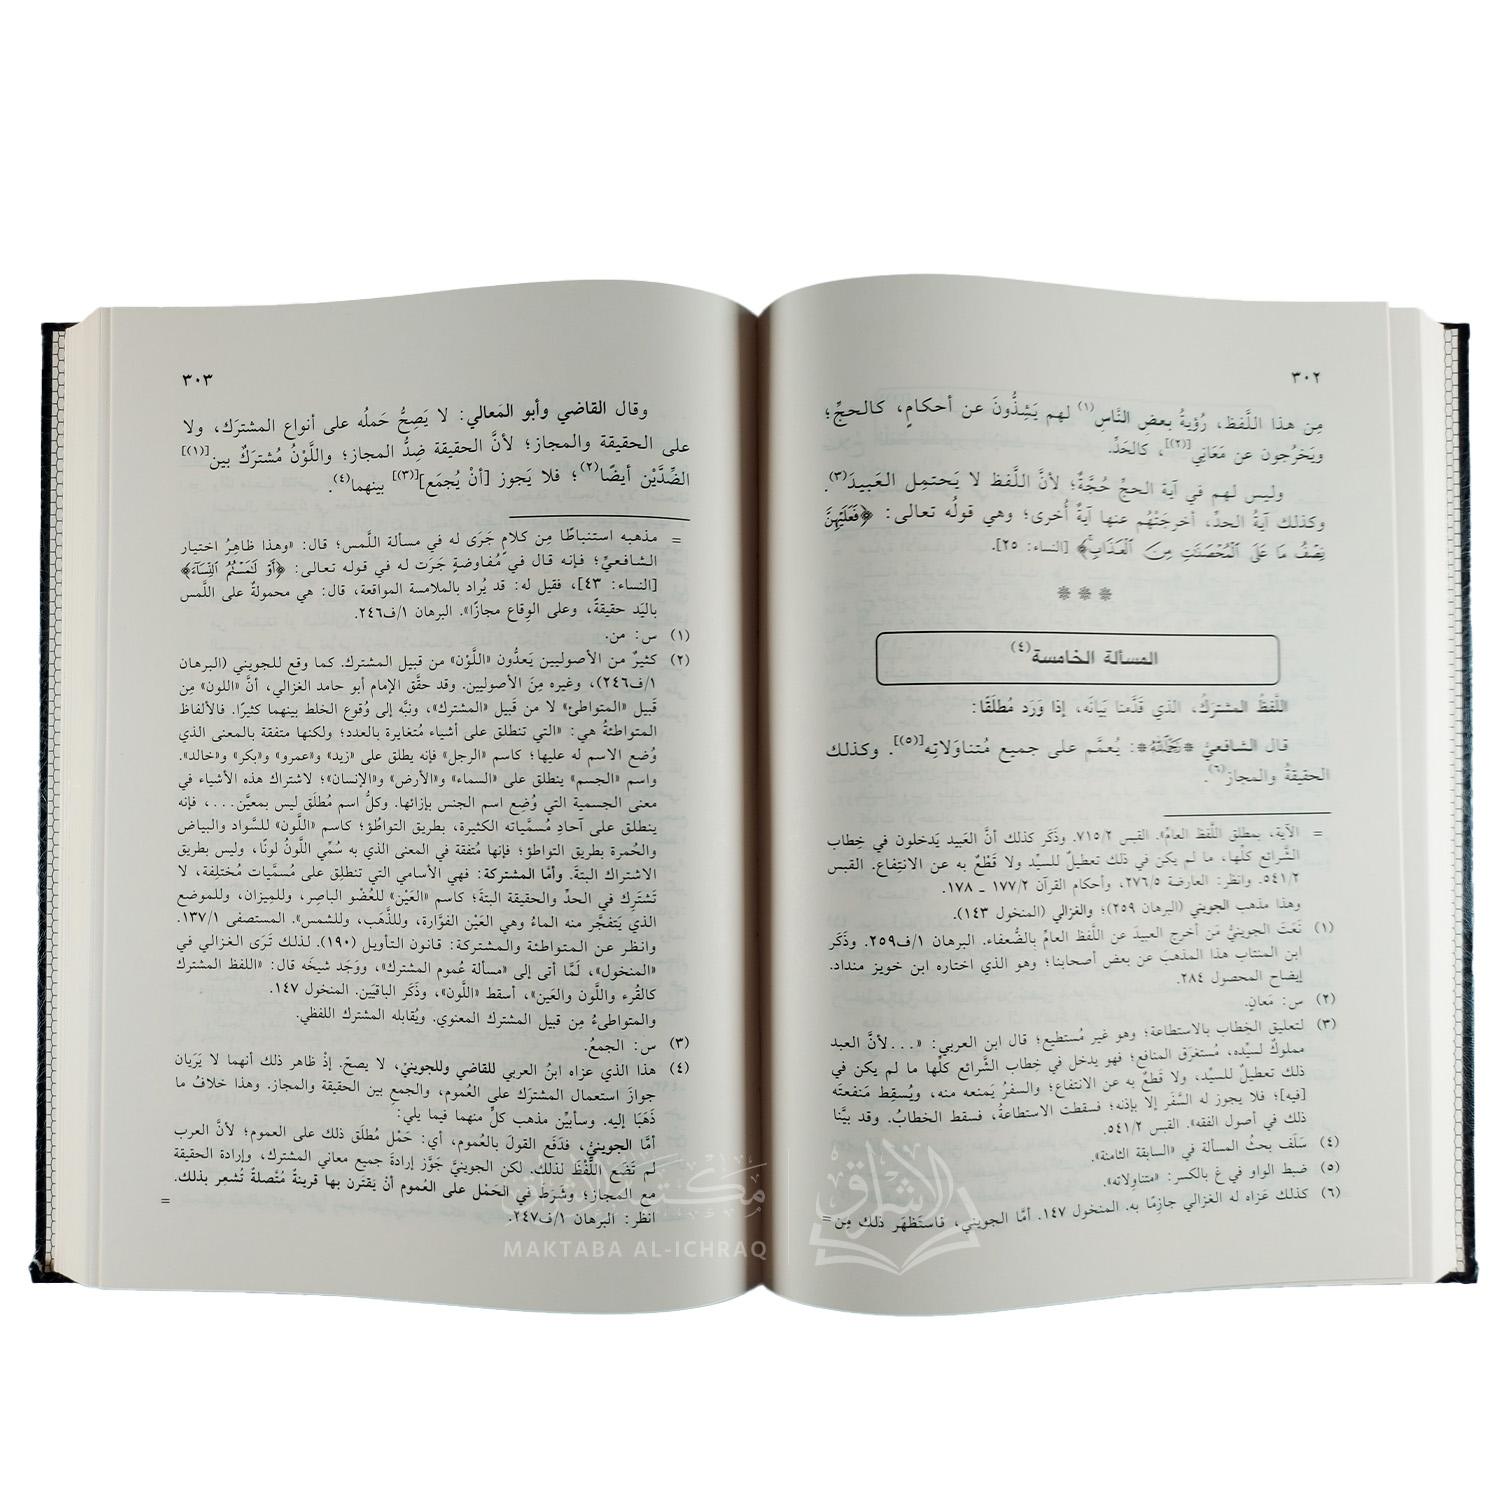 ٣٠٢
مِن هذا اللَّفظ، رُؤيةُ بعض النَّاس(١) لهم يَشِذُّونَ عن أحكامٍ، كالحجِّ؛
ويَخرُجون عن مَعَانِي[(٢)]، كالحَدِّ.
وليس لهم في آية الحجِّ حُجَّةٌ؛ لأنَّ اللَّفظ لا يَحتمِل العَبيدَ(٣).
وكذلك آيةُ الحدِّ، أخرجَتْهُم عنها آيةٌ أُخرى؛ وهي قولُه تعالى: ﴿فَعَلَيْهِنَّ
نِصْفُ مَا عَلَى الْمُحْصَنَٰتِ مِنَ الْعَذَابِ﴾ [النساء: ٢٥].
***
المسألة الخامسة(٤)
اللَّفظُ المشترَكُ، الذي قَدَّمنا بَيانَه، إذا وَرَد مُطلَقًا:
قال الشافعيُّ *رَحِمَهُ اللهُ*: يُعمَّم على جميع مُتناوَلاتِه[(٥)]. وكذلك
الحقيقةُ والمجاز(٦).
= الآية، بمطلق اللَّفظ العامِّ». القبس ٧١٥/٢. وذَكَر كذلك أنَّ العبيد يَدخلون في خِطاب
الشَّرائع كلِّها، ما لم يكن في ذلك تعطيلٌ للسيِّد ولا قَطْعٌ به عن الانتِفاع. القبس
٥٤١/٢. وانظر: العارضة ٢٧٦/٥، وأحكام القرآن ١٧٧/٢ ـ ١٧٨.
وهذا مذهب الجويني (البرهان ٢٥٩)؛ والغزالي (المنخول ١٤٣).
(١) نَعَتَ الجوينيُّ مَن أخرج العبيدَ عن اللَّفظ العامِّ بالضُّعفاء. البرهان ١/ف٢٥٩. وذَكَر
ابن المنتاب هذا المذهبَ عن بعض أصحابنا؛ وهو الذي اختاره ابن خويز منداد.
إيضاح المحصول ٢٨٤.
(٢) س: مَعانٍ.
(٣) لتعليق الخِطاب بالاستطاعة؛ وهو غير مُستطيع؛ قال ابن العربي: «...لأنَّ العبد
مملوكٌ لسيِّده، مُستغرَق المنافع؛ فهو يدخل في خِطاب الشَّرائع كلِّها ما لم يكن في
ذلك تعطيلٌ للسيِّد، ولا قَطْعٌ به عن الانتفاع؛ والسفرُ يَمنعه منه، ويُسقِط مَنفعتَه
[فيه]؛ فلا يجوز له السَّفَر إلا بإذنه؛ فسقطت الاستطاعةُ، فسقط الخطابُ. وقد بيَّنا
ذلك في أصول الفقه». القبس ٥٤١/٢.
(٤) سَلَف بحثُ المسألة في «السابقة الثامنة».
(٥) ضبط الواو في غ بالكسر: «متناوِلاته».
(٦) كذلك عَزاه له الغزالي جازِمًا به. المنخول ١٤٧. أمَّا الجويني، فاستَظهَر ذلك مِن =
٣٠٣
وقال القاضي وأبو المَعالي: لا يَصِحُّ حَملُه على أنواع المشترَك، ولا
على الحقيقة والمجاز؛ لأنَّ الحقيقة ضِدُّ المجاز؛ واللَّوْنُ مُشترَكٌ بين[(١)]
الضِّدَّيْن أيضًا(٢)؛ فلا يَجوز [أنْ يُجمَع][(٣)] بينهما(٤).
= مذهبه استنباطًا مِن كلامٍ جَرَى له في مسألة اللَّمس؛ قال: «وهذا ظاهِرُ اختيار
الشافعيِّ؛ فإنه قال في مُفاوضةٍ جرَت له في قوله تعالى: ﴿أَوْ لَٰمَسْتُمُ النِّسَآءَ﴾
[النساء: ٤٣]، فقيل له: قد يُراد بالملامسة المواقعة، قال: هي محمولةٌ على اللَّمس
باليَد حقيقةً، وعلى الوِقاع مجازًا». البرهان ١/ف٢٤٦.
(١) س: من.
(٢) كثيرٌ من الأصوليين يَعدُّون «اللَّوْن» من قبيل المشترك. كما وقع للجويني (البرهان
١/ف٢٤٦)، وغيره مِنَ الأصوليين. وقد حقَّق الإمام أبو حامد الغزالي، أنَّ «اللون» مِن
قَبيل «المتواطئ» لا من قَبيل «المشترك»، ونبَّه إلى وُقوع الخلط بينهما كثيرًا. فالألفاظ
المتواطئةُ هي: «التي تنطلق على أشياء مُتغايرة بالعدد؛ ولكنها متفقة بالمعنى الذي
وُضع الاسم له عليها؛ كاسم «الرجل» فإنه يطلق على «زيد» و«عمرو» و«بكر» و«خالد».
واسم «الجسم» ينطلق على «السماء» و«الأرض» و«الإنسان»؛ لاشتراك هذه الأشياء في
معنى الجسمية التي وُضِع اسم الجنس بإزائها. وكلُّ اسم مُطلَق ليس بمعيَّن...، فإنه
ينطلق على آحادِ مُسمَّياته الكثيرة، بطريق التواطُؤ؛ كاسم «اللَّون» للسَّواد والبياض
والحُمرة بطريق التواطؤ؛ فإنها مُتفقة في المعنى الذي به سُمِّي اللَّونُ لونًا، وليس بطريق
الاشتراك البتةَ. وأمَّا المشتركة: فهي الأسامي التي تنطلِق على مُسمَّيات مُختلِفة، لا
تَشتَرِك في الحدِّ والحقيقة البتةَ؛ كاسم «العَيْن» للعُضو الباصِر، وللمِيزان، وللموضع
الذي يَتفجَّر منه الماءُ وهي العَيْن الفوَّارة، وللذَّهَب، وللشمس». المستصفى ١٣٧/١.
وانظر عن المتواطئة والمشتركة: قانون التأويل (١٩٠). لذلك تَرَى الغزالي في
«المنخول»، لَمَّا أتى إلى «مسألة عُموم المشترك»، ووَجَد شيخَه قال: «اللفظ المشترك
كالقُرء واللَّون والعَين»، أسقط «اللَّون»، وذَكَر الباقيَين. المنخول ١٤٧.
والمتواطىءُ مِن قبيل المشترك المعنوي. ويُقابله المشترك اللفظي.
(٣) س: الجمعُ.
(٤) هذا الذي عزاه ابنُ العربي للقاضي وللجوينيِّ، لا يصحّ. إذْ ظاهر ذلك أنهما لا يَرَيان
جوازَ استعمال المشترَك على العُموم، والجمع بين الحقيقة والمجاز. وهذا خلافُ ما
ذَهَبَا إليه. وسأبيِّن مذهب كلٍّ منهما فيما يلي:
أمَّا الجوينيُّ، فدَفَع القولَ بالعُموم، أي: حَمْل مُطلَق ذلك على العموم؛ لأنَّ العرب
لم تَضَع اللَّفْظَ لذلك. لكن الجوينيَّ جَوَّز إرادةَ جميع معاني المشترك، وإرادة الحقيقة
مع المجاز؛ وشَرَط في الحَمْل على العُموم أنْ يَقترن بها قرينةٌ مُتَّصلةٌ تُشعِر بذلك.
انظر: البرهان ١/ف٢٤٧. =
مكتبة الإشراق
MAKTABA AL-ICHRAQ
الإشراق